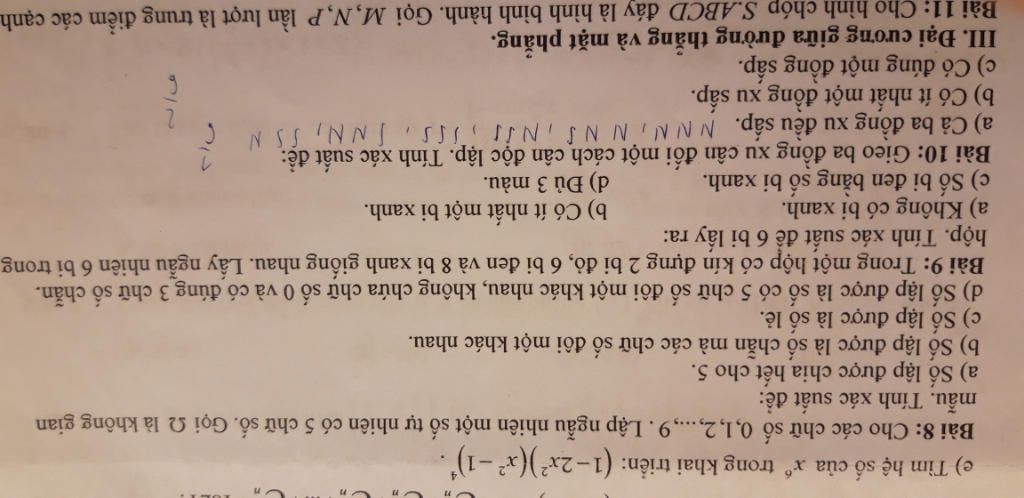 e) Tìm hệ số của x⁶ trong khai triển: (1−2x²)(x²−1)⁴.
Bài 8: Cho các chữ số 0,1,2,...,9. Lập ngẫu nhiên một số tự nhiên có 5 chữ số. Gọi Ω là không gian
mẫu. Tính xác suất để:
a) Số lập được chia hết cho 5.
b) Số lập được là số chẵn mà các chữ số đôi một khác nhau.
c) Số lập được là số lẻ.
d) Số lập được là số có 5 chữ số đôi một khác nhau, không chứa chữ số 0 và có đúng 3 chữ số chẵn.
Bài 9: Trong một hộp có kín đựng 2 bi đỏ, 6 bi đen và 8 bi xanh giống nhau. Lấy ngẫu nhiên 6 bi trong
hộp. Tính xác suất để 6 bi lấy ra:
a) Không có bi xanh. b) Có ít nhất một bi xanh.
c) Số bi đen bằng số bi xanh. d) Đủ 3 màu.
Bài 10: Gieo ba đồng xu cân đối một cách cân độc lập. Tính xác suất để:
a) Cả ba đồng xu đều sấp. NNN, NNS, NSS, SSS, SNN, SSN
b) Có ít nhất một đồng xu sấp.
c) Có đúng một đồng sấp.
III. Đại cương giữa đường thẳng và mặt phẳng.
Bài 11: Cho hình chóp S.ABCD đáy là hình bình hành. Gọi M, N, P lần lượt là trung điểm các cạnh